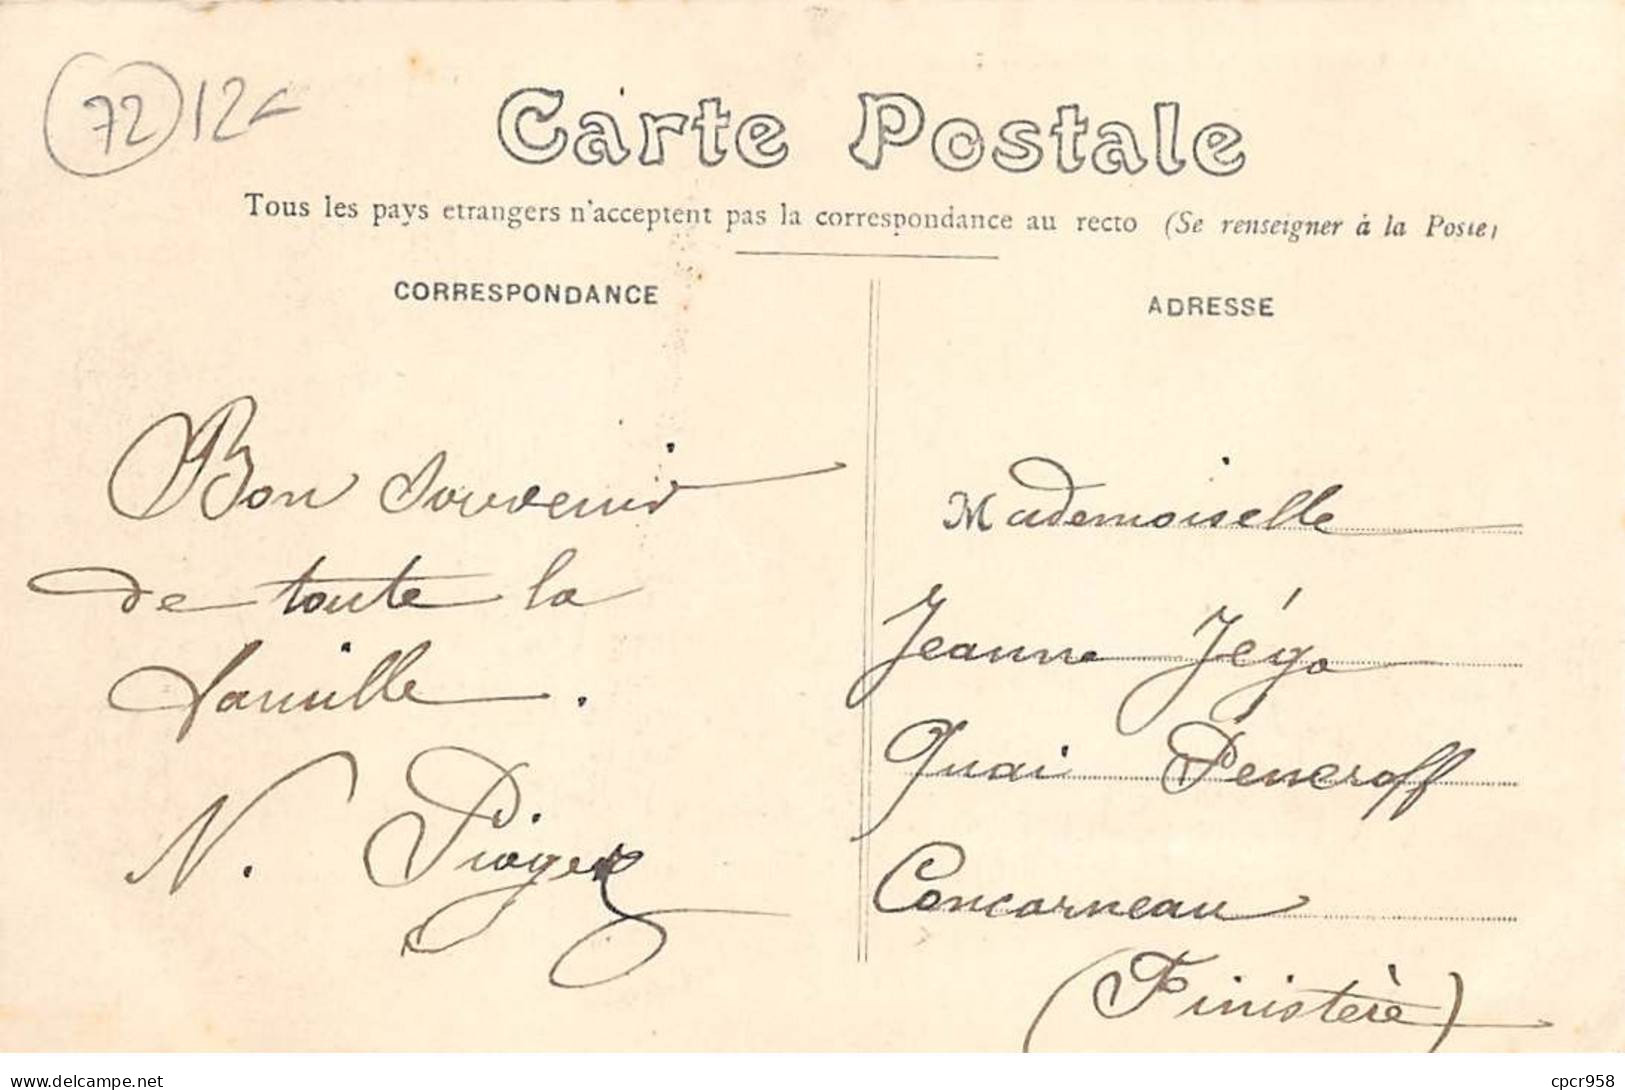 72 12€
Carte Postale
Tous les pays etrangers n'acceptent pas la correspondance au recto (Se renseigner à la Poste)
CORRESPONDANCE
ADRESSE
Bon souvenir
de toute la
famille.
N. Pioger
Mademoiselle
Jeanne Jégo
Quai Peneroff
Concarneau
(Finistère)
delcampe.net
cpcr958